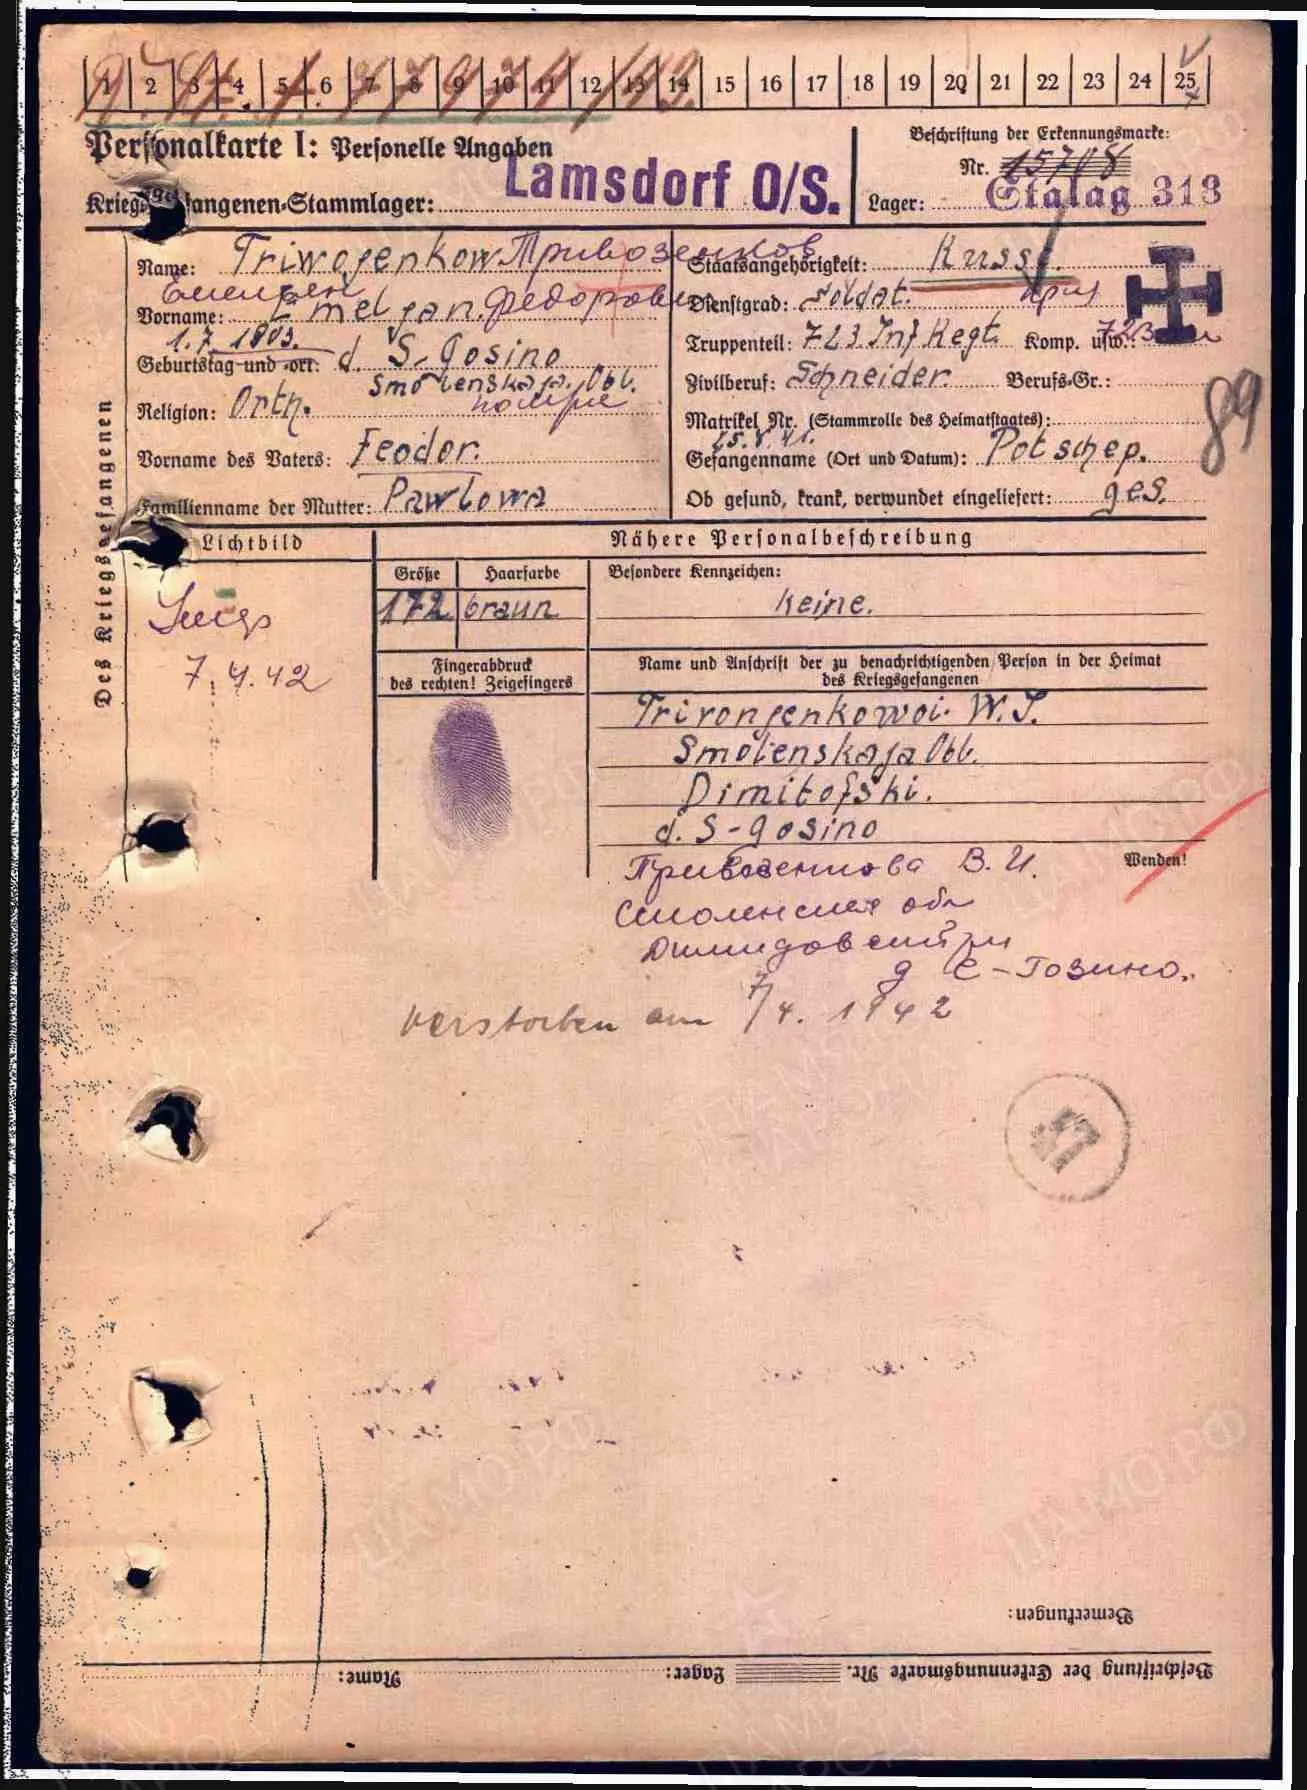 1 2 3 4 5 6 7 8 9 10 11 12 13 14 15 16 17 18 19 20 21 22 23 24 25
Personalkarte I: Personelle Angaben
Beschriftung der Erkennungsmarke:
Nr. 15708
Kriegsgefangenen-Stammlager: Lamsdorf O/S.
Lager: Stalag 318
Des Kriegsgefangenen
Name: Triwojenkow Тривозенков
Staatsangehörigkeit: Russe.
Емельян
Vorname: Emeljan. Федорович
Dienstgrad: Soldat.
1.7.1903.
Geburtstag und -ort: d. S-Gosino
Smolenskaja. Obl.
Truppenteil: 723 Inf Regt. Komp. usw.: 723
Zivilberuf: Schneider. Berufs-Gr.:
Religion: Orth.
Matrikel Nr. (Stammrolle des Heimatstaates):
Vorname des Vaters: Feodor.
25.8.41.
Gefangenname (Ort und Datum): Potschep.
89
Familienname der Mutter: Pawlowa
Ob gesund, krank, verwundet eingeliefert: ges.
Lichtbild
Nähere Personalbeschreibung
Größe Haarfarbe Besondere Kennzeichen:
172 braun keine.
7.4.42
Fingerabdruck
des rechten! Zeigefingers
Name und Anschrift der zu benachrichtigenden Person in der Heimat
des Kriegsgefangenen
Trivonjenkowoi. W. I.
Smolenskaja Obl.
Dimitofski.
d. S-gosino
Wenden!
Тривозенкова В. И.
Смоленская обл
Димидовский рн
д С-Гозино.
verstorben am 7/4. 1942
Bemerkungen:
Beschriftung der Erkennungsmarke Nr. Lager: Name: